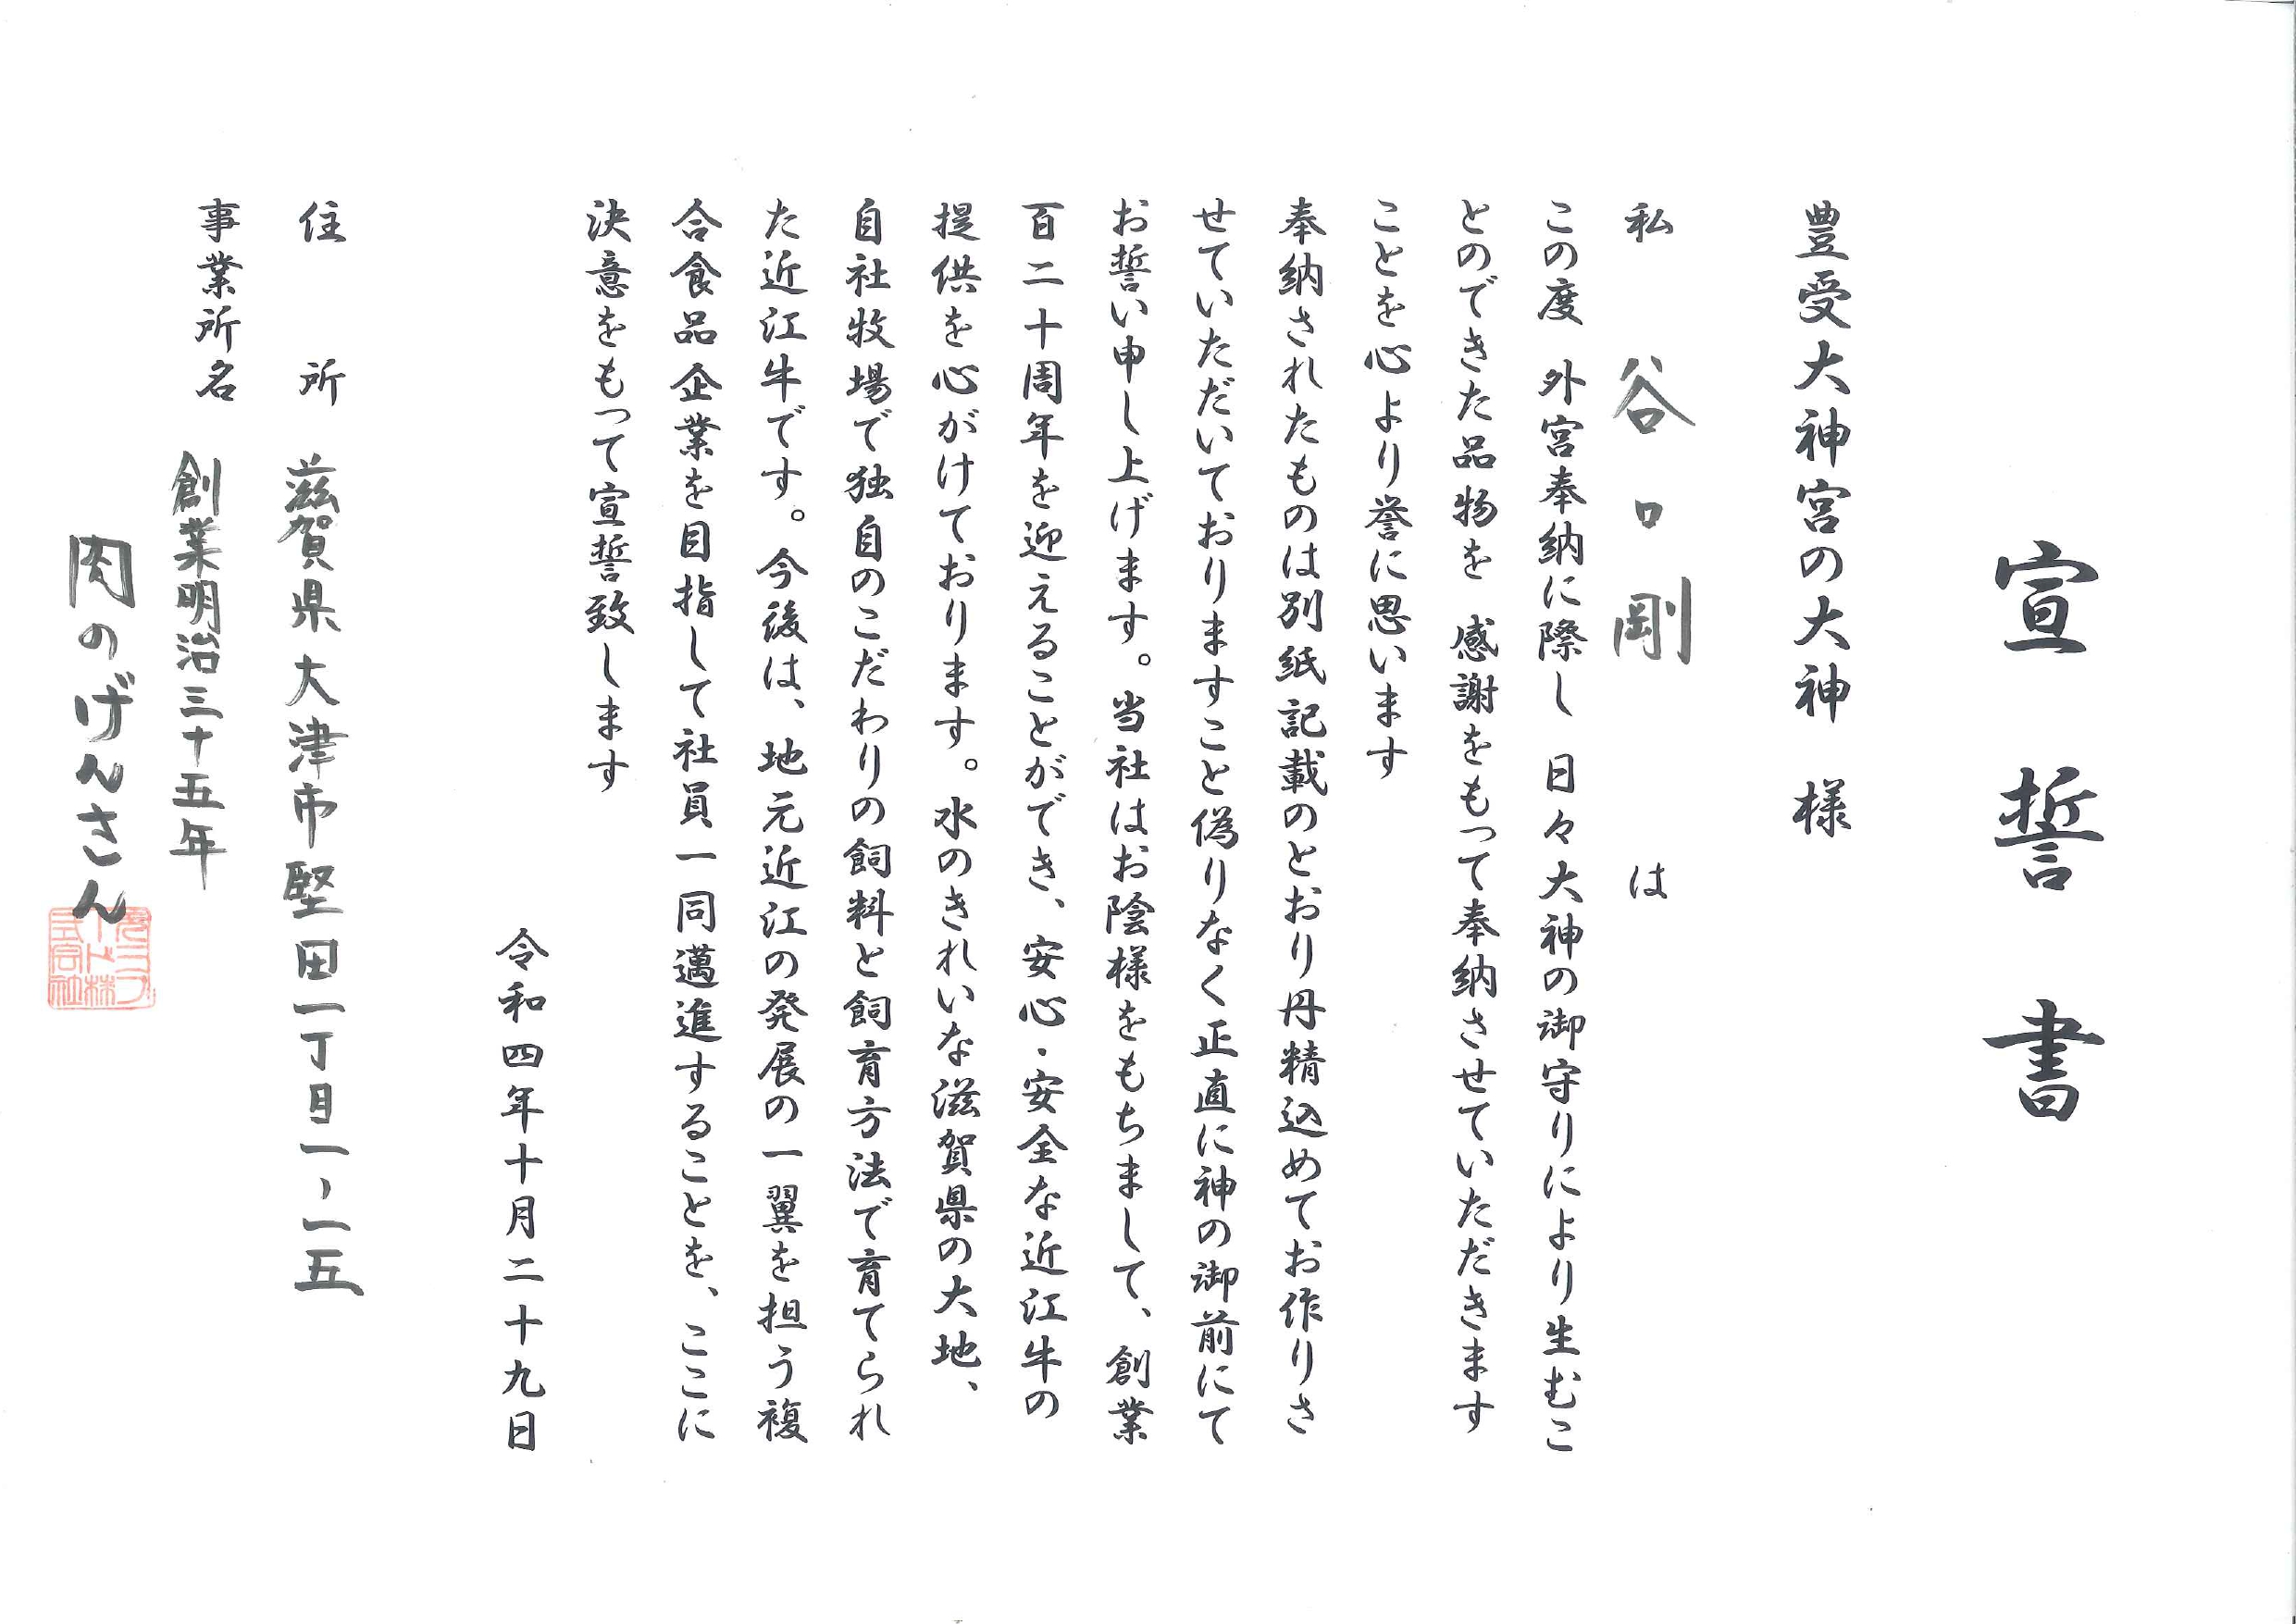 宣誓書
豊受大神宮の大神 様
私 谷口剛 は
この度 外宮奉納に際し 日々大神の御守りにより生むこ
とのできた品物を 感謝をもって奉納させていただきます
ことを心より誉に思います
奉納されたものは別紙記載のとおり丹精込めてお作りさ
せていただいておりますこと偽りなく正直に神の御前にて
お誓い申し上げます。当社はお陰様をもちまして、創業
百二十周年を迎えることができ、安心・安全な近江牛の
提供を心がけております。水のきれいな滋賀県の大地、
自社牧場で独自のこだわりの飼料と飼育方法で育てられ
た近江牛です。今後は、地元近江の発展の一翼を担う複
合食品企業を目指して社員一同邁進することを、ここに
決意をもって宣誓致します
令和四年十月二十九日
住所 滋賀県大津市堅田一丁目一、一五
事業所名 創業明治三十五年
肉のげんさん